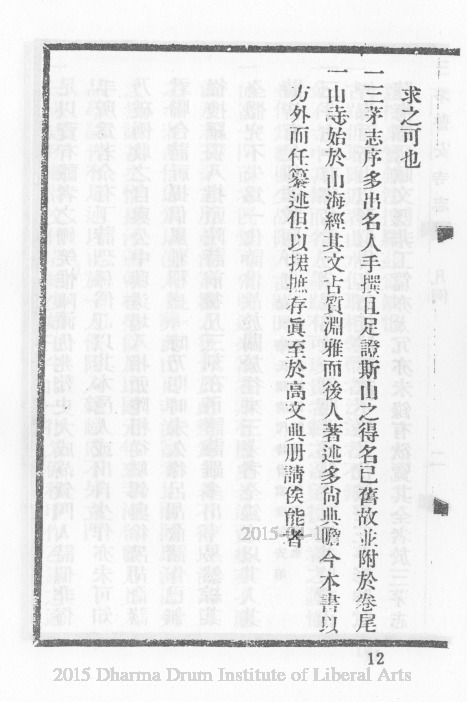 求之可也
一三茅志序多出名人手撰且足證斯山之得名已舊故並附於卷尾
一山志始於山海經其文古質淵雅而後人著述多尙典贍今本書以
方外而任纂述但以捃摭存眞至於高文典册請俟能者
12
2015 Dharma Drum Institute of Liberal Arts